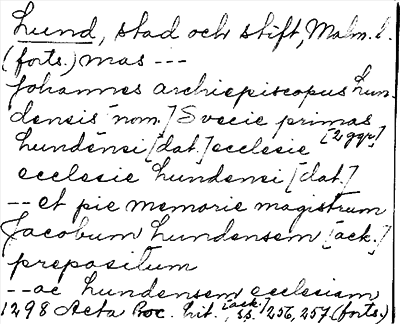 Lund, stad och stift, Malm. l.
(forts.) mas ---
Johannes archiepiscopus Lun-
densis [nom.] Svecie primas
Lundensi [dat.] ecclesie [2 ggr]
ecclesie Lundensi [dat.]
-- et pie memorie magistrum
Jacobum Lundensem [ack.]
prepositum
-- ac Lundensem ecclesiam
1298 Acta Proc. Lit. [ack.] s. 256, 257 (forts.)